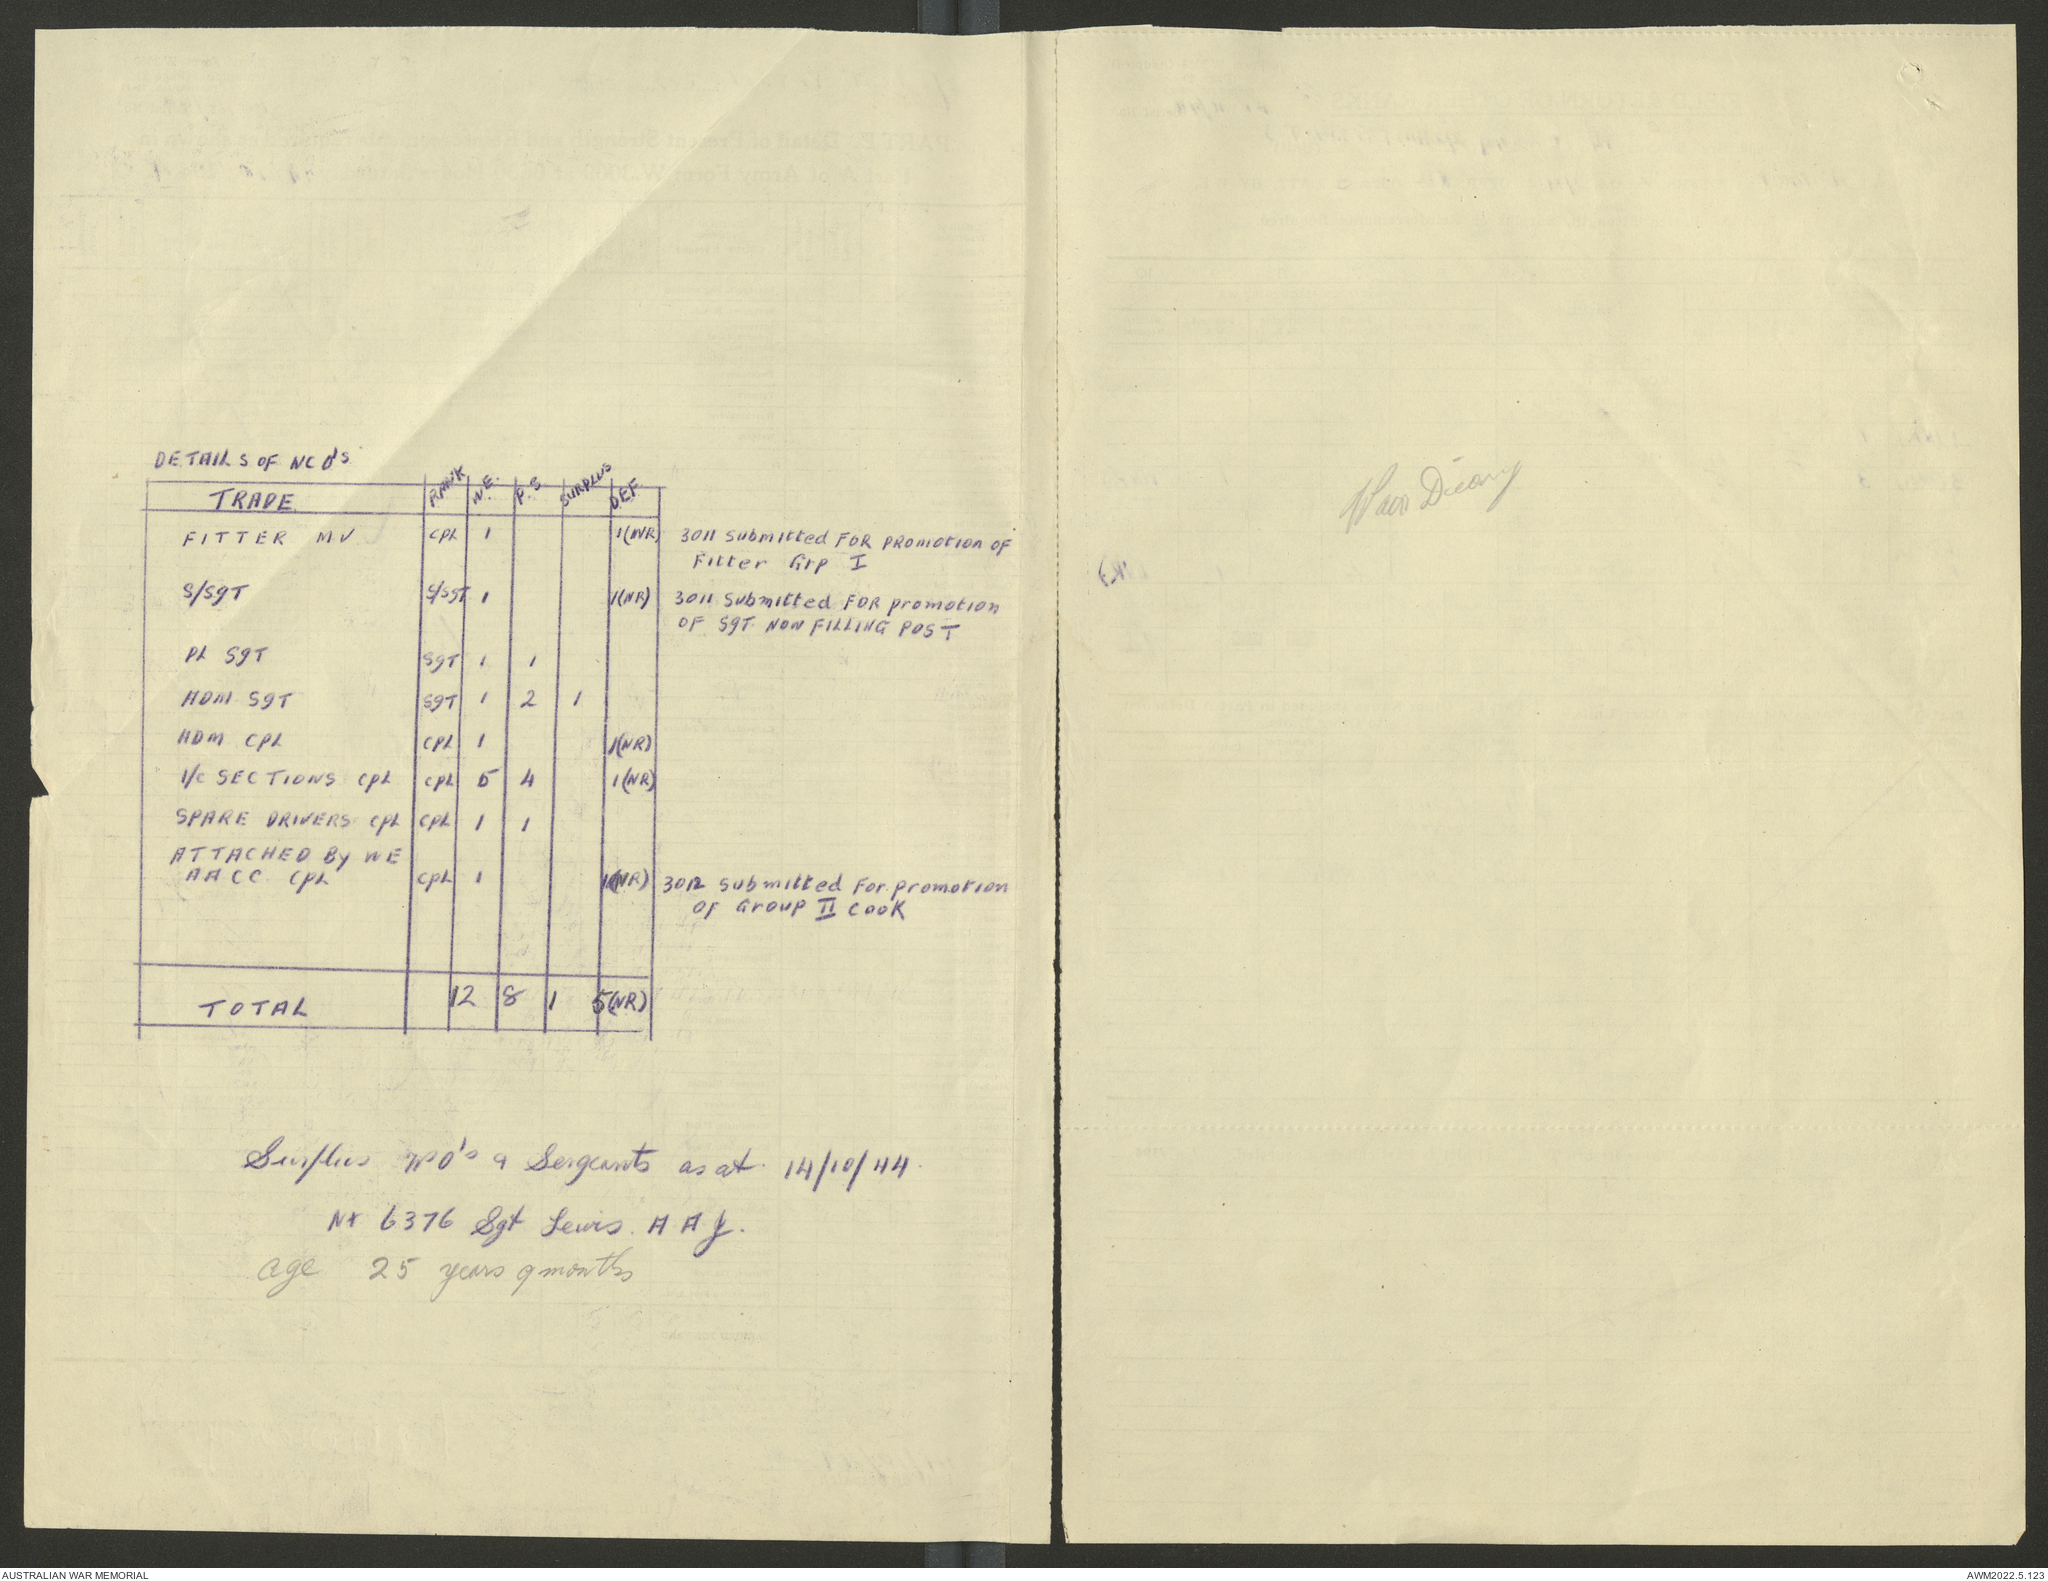 DETAILS OF NCO'S
TRADE RANK W.E. P.S. SURPLUS DEF.
FITTER MV CPL 1 1(NR) 3011 Submitted FOR PROMOTION OF
Fitter Grp I
S/SgT S/SgT 1 1(NR) 3011 Submitted FOR promotion
OF SgT NON FILLING POST
PL SgT SgT 1 1
HDM SgT SgT 1 2 1
HDM CPL CPL 1 1(NR)
I/C SECTIONS CPL CPL 5 4 1(NR)
SPARE DRIVERS CPL CPL 1 1
ATTACHED By WE
AACC CPL CPL 1 1(NR) 3012 Submitted For promotion
OF Group II Cook
TOTAL 12 8 1 5(NR)
Surplus WO's & Sergeants as at 14/10/44.
NX 6376 Sgt Lewis. A A J.
age 25 years 9 months
War Diary
AUSTRALIAN WAR MEMORIAL
AWM2022.5.123